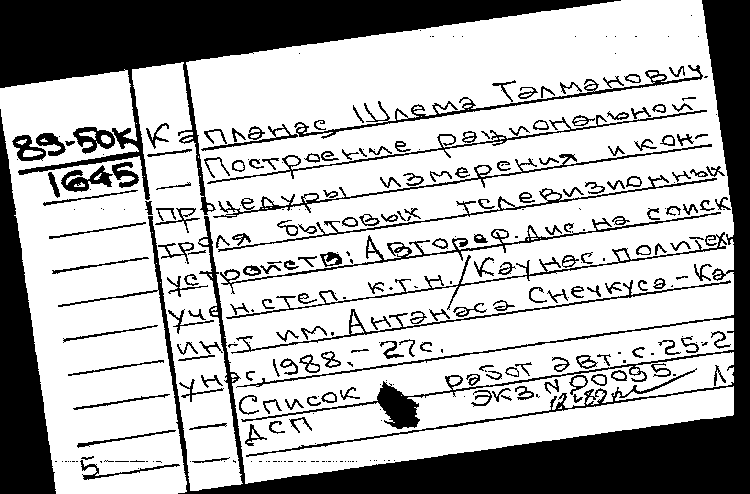 89-50К
1645
Капланас Шлема Талманович
Построение рациональной
процедуры измерения и кон-
троля бытовых телевизионных
устройств: Автореф. дис. на соиск
учен. степ. к.т.н. / Каунас. политехн
ин-т им. Антанаса Снечкуса.- Ка-
унас, 1988.- 27с.
Список работ авт.: с. 25-2
ДСП экз. N 00095.
5